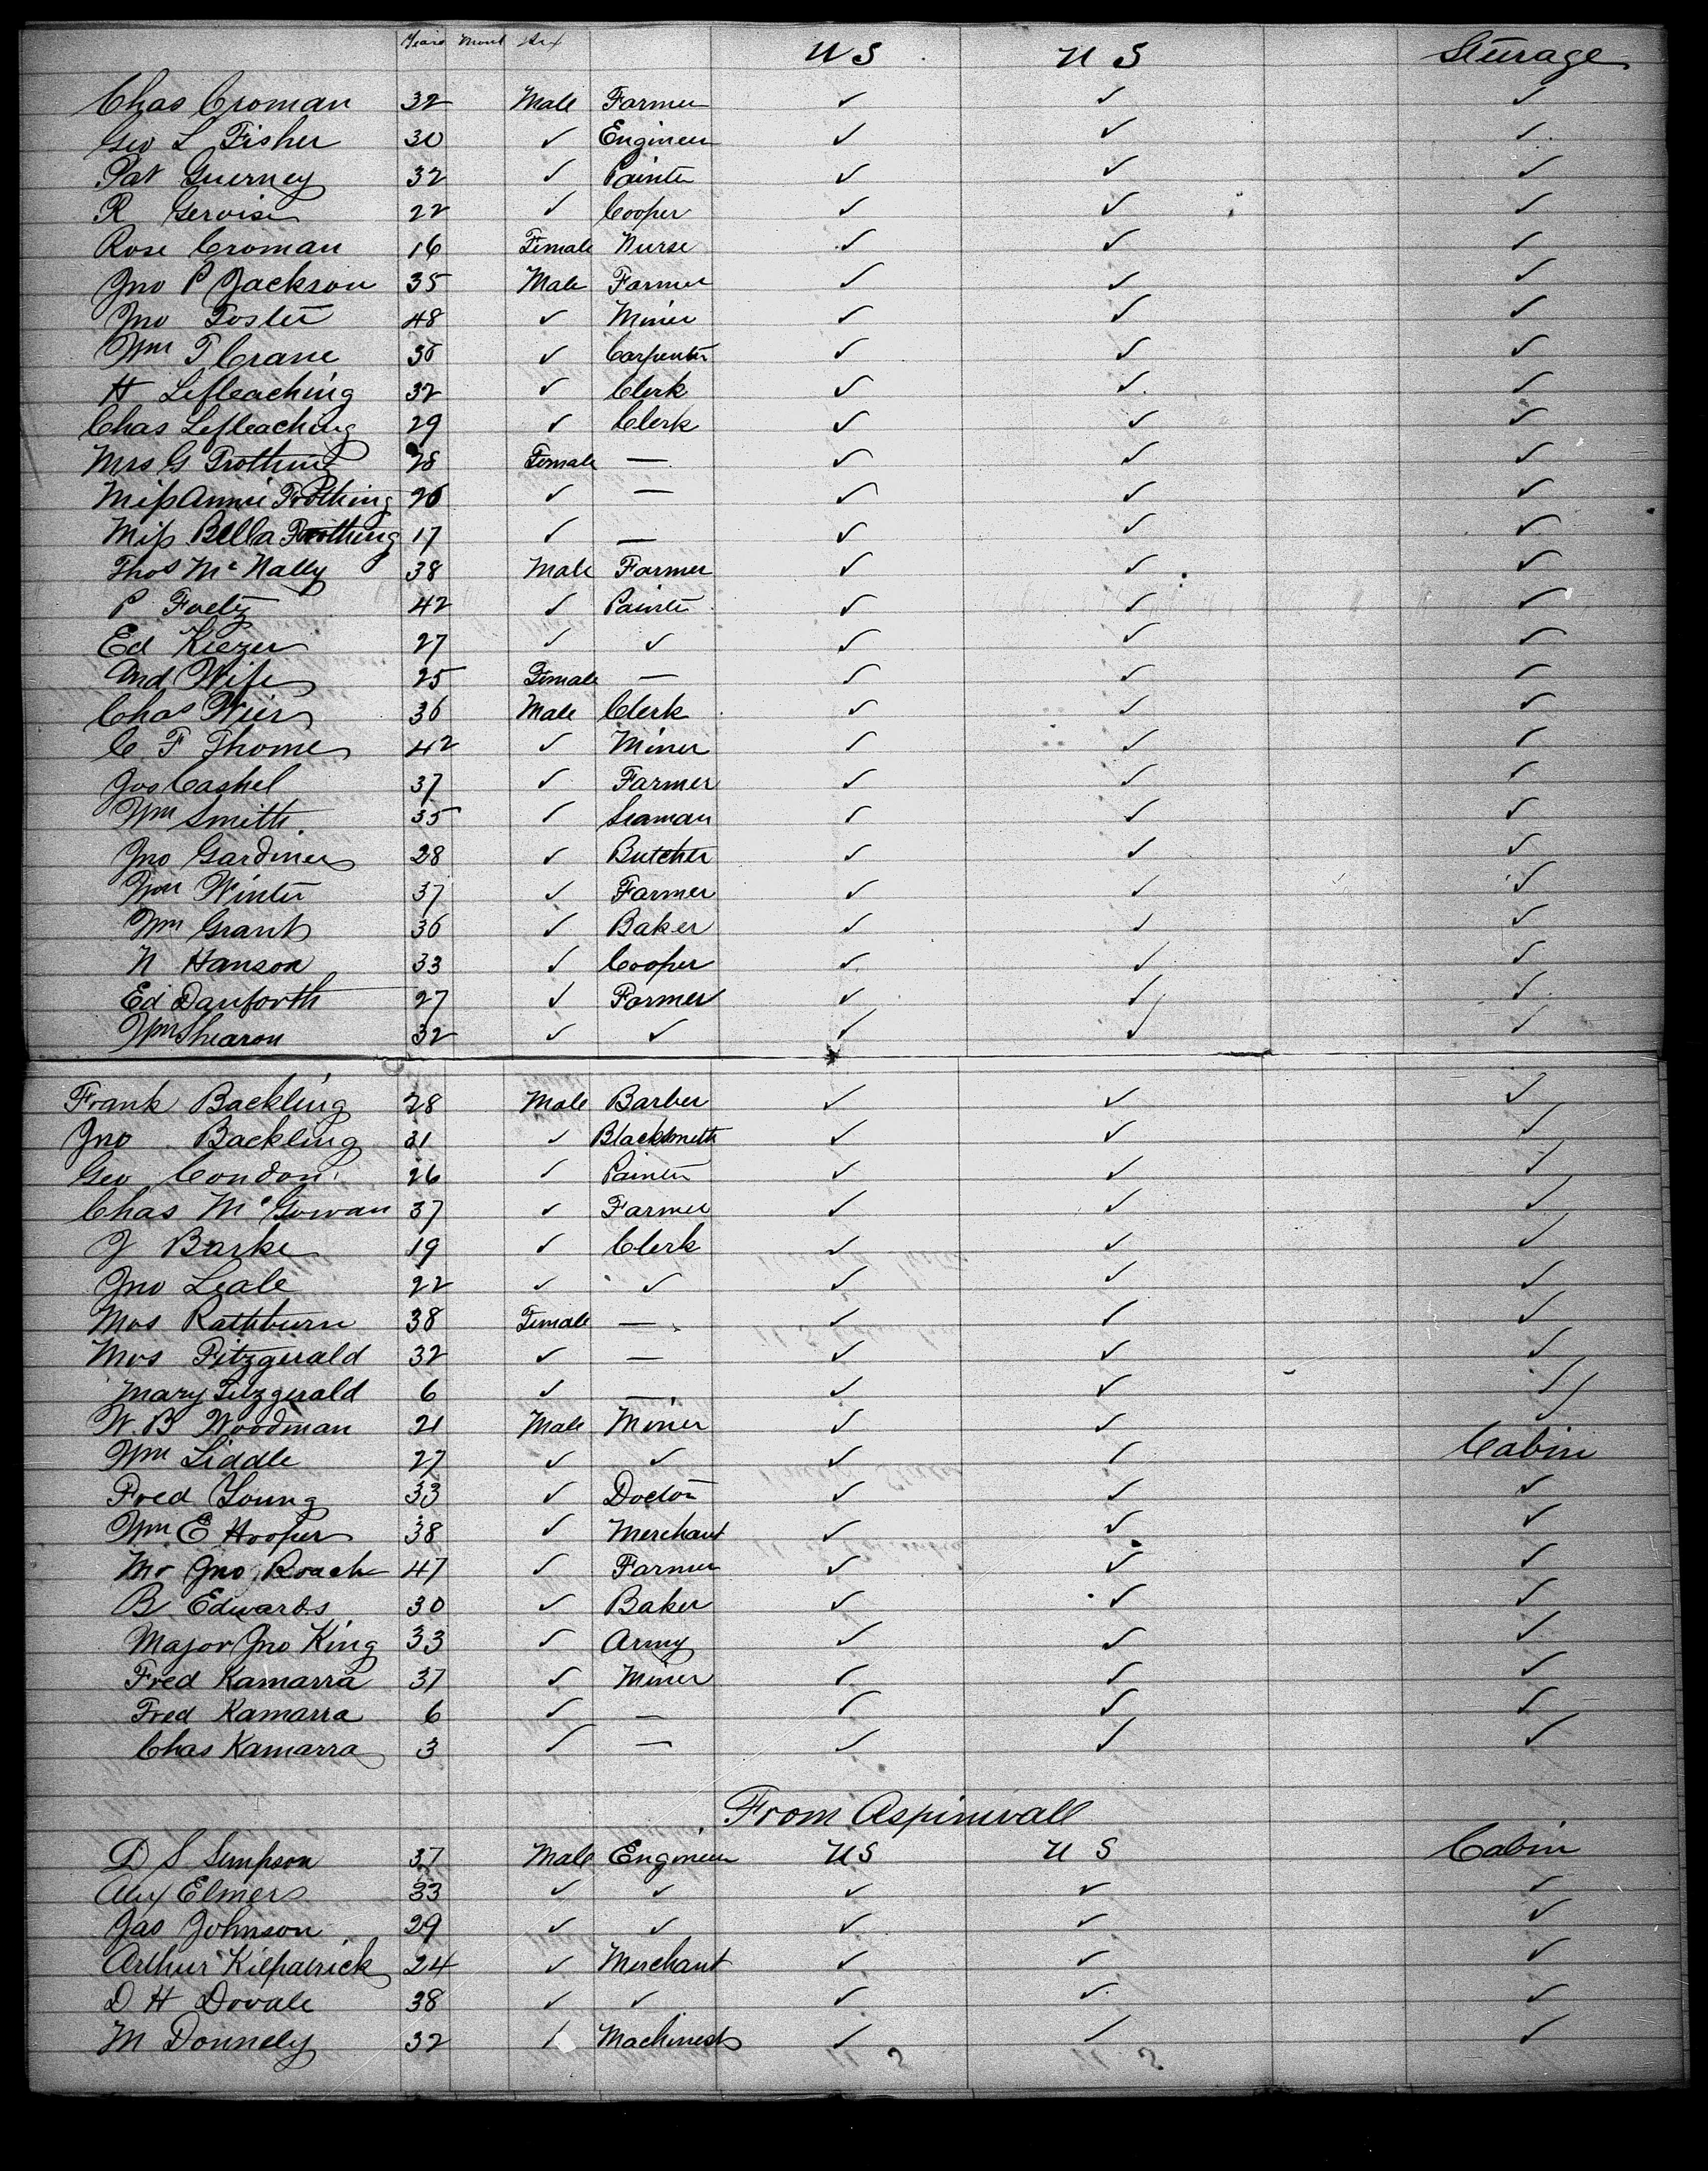 Years Mont Sex
U S U S Steerage
Chas Croman 32 Male Farmer ✓ ✓ ✓
Geo L Fisher 30 ✓ Engineer ✓ ✓ ✓
Pat Guerney 32 ✓ Painter ✓ ✓ ✓
R 22 ✓ Cooper ✓ ✓ ✓
Rose Croman 16 Female Nurse ✓ ✓ ✓
Jno P Jackson 35 Male Farmer ✓ ✓ ✓
Jno Foster 48 ✓ Miner ✓ ✓ ✓
Wm T Crane ✓ Carpenter ✓ ✓ ✓
H Lefleaching 32 ✓ Clerk ✓ ✓ ✓
Chas Lefleaching 29 ✓ Clerk ✓ ✓ ✓
Mrs G 28 Female — ✓ ✓ ✓
Miss Annie Frothing ✓ — ✓ ✓ ✓
Miss Bella Frothing 17 ✓ — ✓ ✓ ✓
Thos Mc Nally 38 Male Farmer ✓ ✓ ✓
P Foetz 42 ✓ Painter ✓ ✓ ✓
Ed Kiezer 27 ✓ ✓ ✓ ✓ ✓
And Wife 25 Female — ✓ ✓ ✓
Chas Wier 36 Male Clerk ✓ ✓ ✓
C F Thome 42 ✓ Miner ✓ ✓ ✓
Jos Cashel 37 ✓ Farmer ✓ ✓ ✓
Wm Smith 35 ✓ Seaman ✓ ✓ ✓
Jno Gardiner 28 ✓ Butcher ✓ ✓ ✓
Wm Winter 37 ✓ Farmer ✓ ✓ ✓
Wm Grant 36 ✓ Baker ✓ ✓ ✓
N Hanson 33 ✓ Cooper ✓ ✓ ✓
Ed Danforth 27 ✓ Farmer ✓ ✓ ✓
Wm Shearon 32 ✓ ✓ ✓ ✓ ✓
Frank Backling 28 Male Barber ✓ ✓ ✓
Jno Backling 31 ✓ Blacksmith ✓ ✓ ✓
Geo Condon 26 ✓ Painter ✓ ✓ ✓
Chas Mc Gowan 37 ✓ Farmer ✓ ✓ ✓
J Barke 19 ✓ Clerk ✓ ✓ ✓
Jno Leale 22 ✓ ✓ ✓ ✓ ✓
Mrs Rathburn 38 Female — ✓ ✓ ✓
Mrs Fitzgerald 32 ✓ — ✓ ✓ ✓
Mary Fitzgerald 6 ✓ — ✓ ✓ ✓
W. B Woodman 21 Male Miner ✓ ✓ ✓
Wm Liddle 27 ✓ ✓ ✓ ✓ Cabin
Fred Young 33 ✓ Doctor ✓ ✓ ✓
Wm E Hooper 38 ✓ Merchant ✓ ✓ ✓
Mr Jno Roach 47 ✓ Farmer ✓ ✓ ✓
B Edwards 30 ✓ Baker ✓ ✓ ✓
Major Jno King 33 ✓ Army ✓ ✓ ✓
Fred Kamarra 37 ✓ Miner ✓ ✓ ✓
Fred Kamarra 6 ✓ — ✓ ✓ ✓
Chas Kamarra 3 ✓ — ✓ ✓ ✓
From Aspinwall
D S Simpson 37 Male Engineer U S U S Cabin
Alex Elmers 33 ✓ ✓ ✓ ✓ ✓
Jas Johnson 29 ✓ ✓ ✓ ✓ ✓
Arthur Kilpatrick 24 ✓ Merchant ✓ ✓ ✓
D H Dovale 38 ✓ ✓ ✓ ✓ ✓
M Donnely 32 ✓ Machinest ✓ ✓ ✓